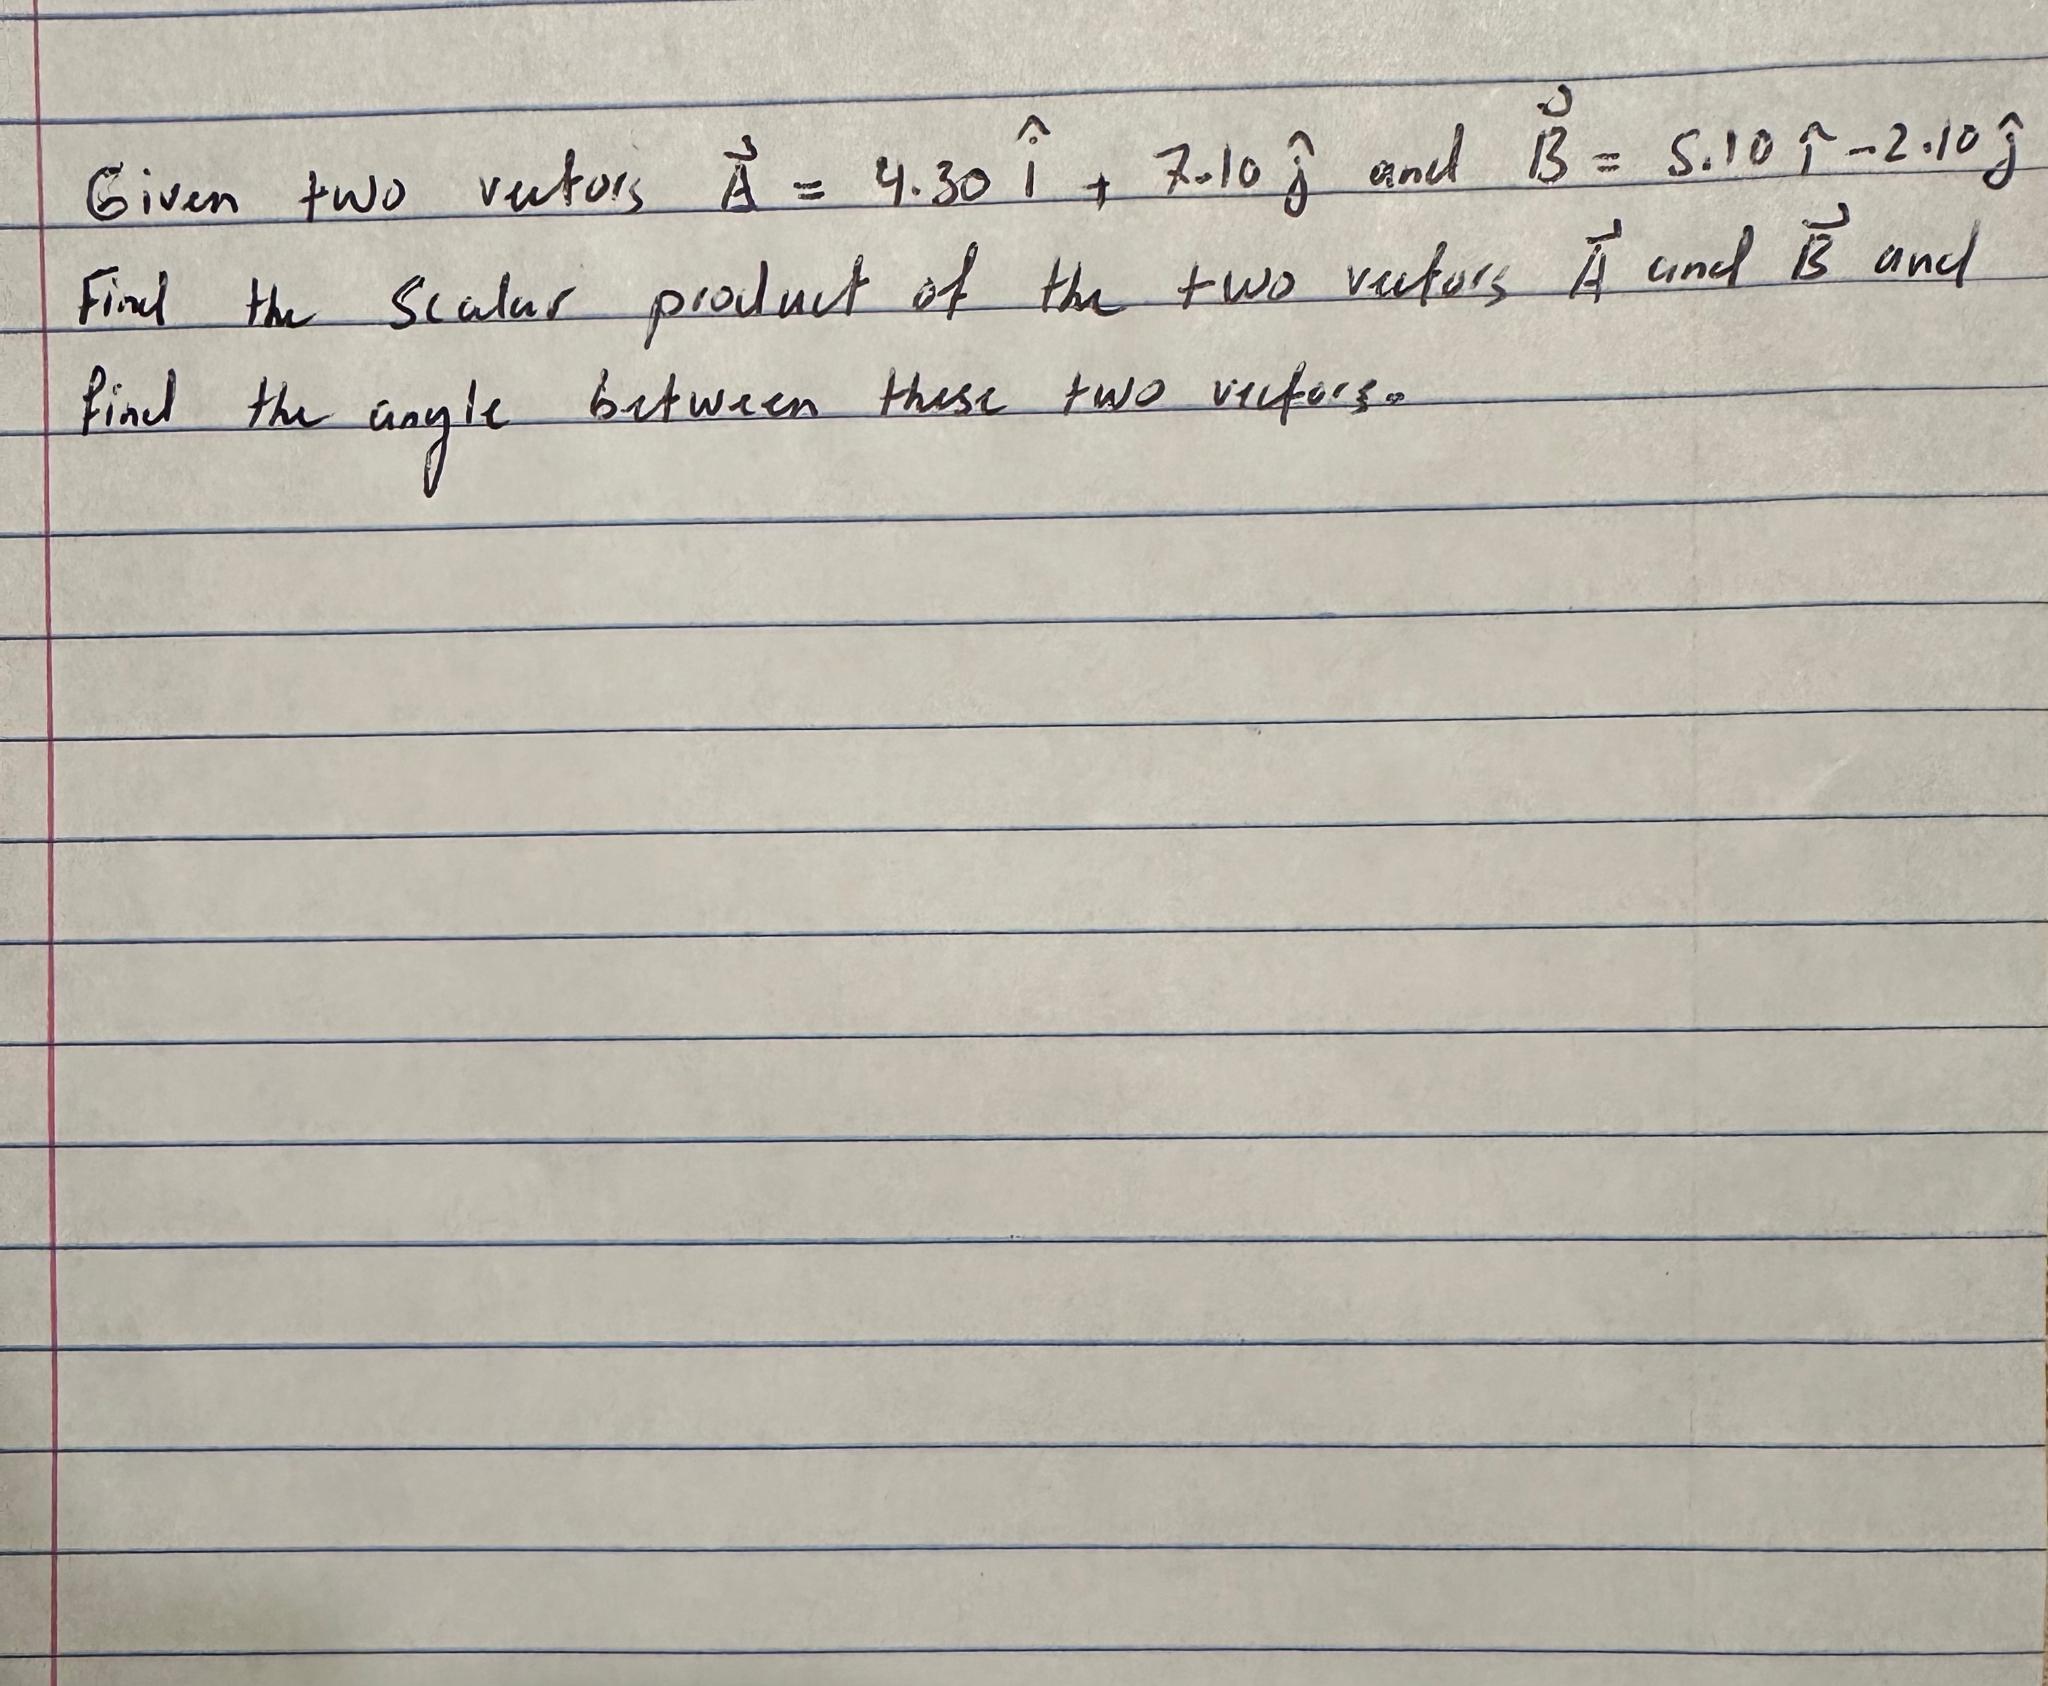 Given two vectors A⃗ = 4.30 î + 7.10 ĵ and B⃗ = 5.10 î - 2.10 ĵ
Find the Scalar product of the two vectors A⃗ and B⃗ and
find the angle between these two vectors.